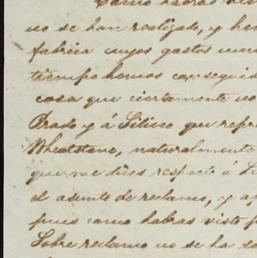 Como habras vis
no se han realizado, y he
fabrica cuyos gastos
tiempo hemos conseguid
cosa que ciertamente no
Prado y á Silico que repr
Wheatstone, naturalmente
que me dices respecto á
el asunto de reclamo, y
pues como habras visto
Sobre reclamo no se ha